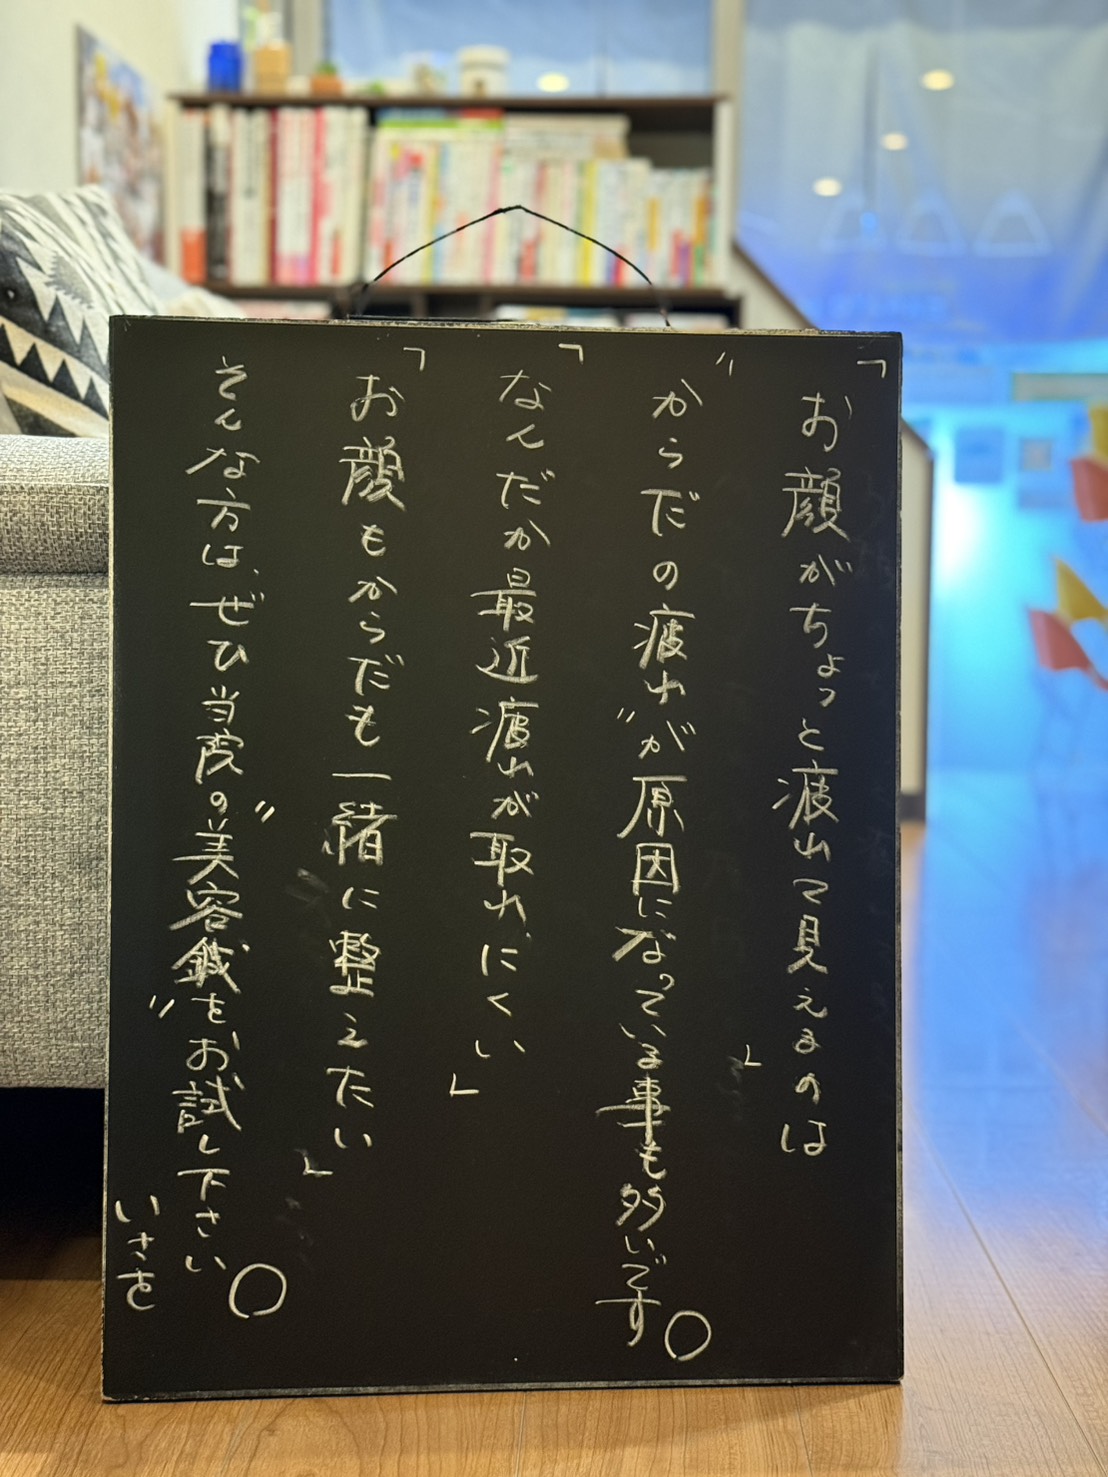 「お顔がちょっと疲れて見えるのは」
"からだの疲れ"が原因になっている事も多いです。
「なんだか最近疲れが取れにくい」
「お顔もからだも一緒に整えたい」
そんな方は、ぜひ当院の"美容鍼"をお試し下さい。
いさを